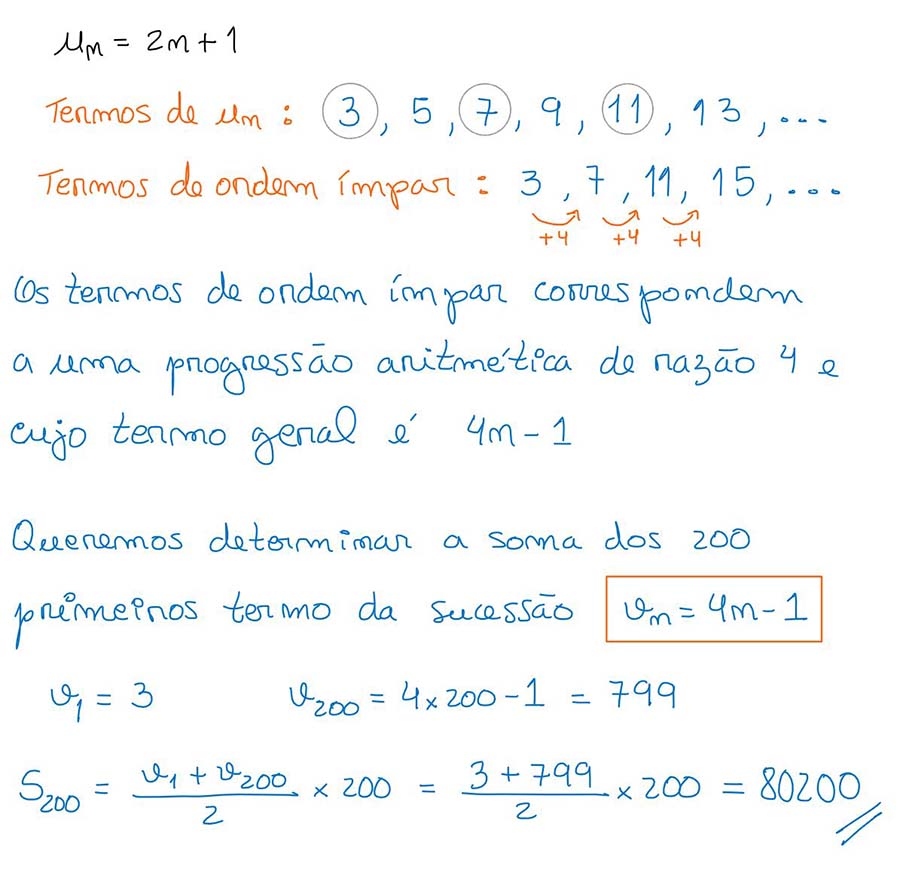 un = 2n + 1
Termos de un : 3 , 5 , 7 , 9 , 11 , 13 , ...
Termos de ordem ímpar : 3 , 7 , 11 , 15 , ...
+4 +4 +4
Os termos de ordem ímpar correspondem
a uma progressão aritmética de razão 4 e
cujo termo geral é 4n - 1
Queremos determinar a soma dos 200
primeiros termo da sucessão vn = 4n - 1
v1 = 3 v200 = 4 x 200 - 1 = 799
S200 = (v1 + v200)/2 x 200 = (3 + 799)/2 x 200 = 80200